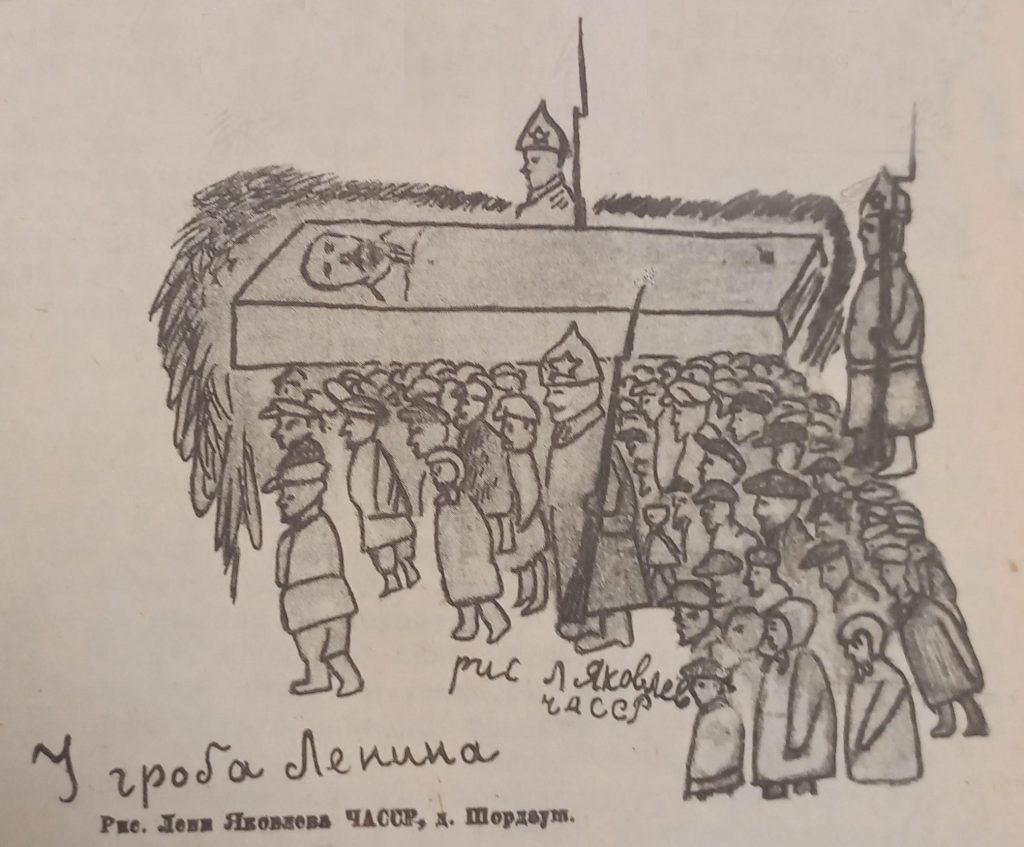 рис Л Яковлев
ЧАССР
У гроба Ленина
Рис. Лени Яковлева ЧАССР, д. Шордаут.